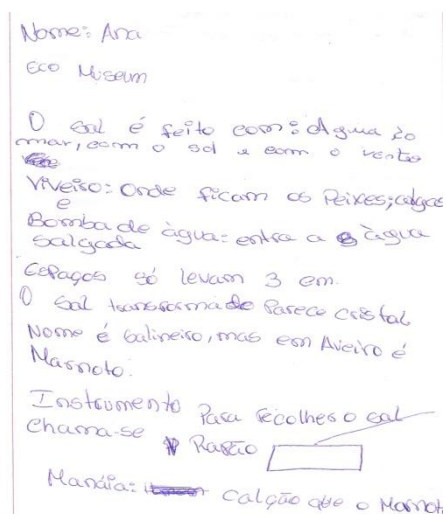 Nome: Ana
Eco Museum
O sal é feito com: Agua do
mar, com o sol e com o vento
Viveiro: Onde ficam os Peixes; algas
e
Bomba de àgua: entra a àgua
salgada
Espaços só levam 3 cm.
O sal transformado Parece cristal
Nome é salineiro, mas em Aveiro é
Marnoto.
Instrumento Para recolher o sal
chama-se Rasão
Manáia: calção que o Marnoto